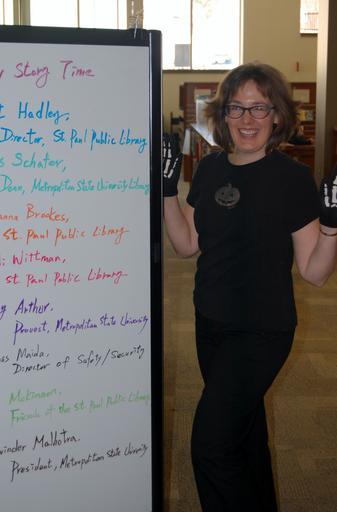 Story Time
Hadley,
Director, St. Paul Public Library
Schafer,
Dean, Metropolitan State University Library
Brookes,
St. Paul Public Library
Wittman,
St. Paul Public Library
Arthur,
Provost, Metropolitan State University
Maida,
Director of Safety/Security
McKinnon,
Friends of the St. Paul Public Library
Malhotra,
President, Metropolitan State University